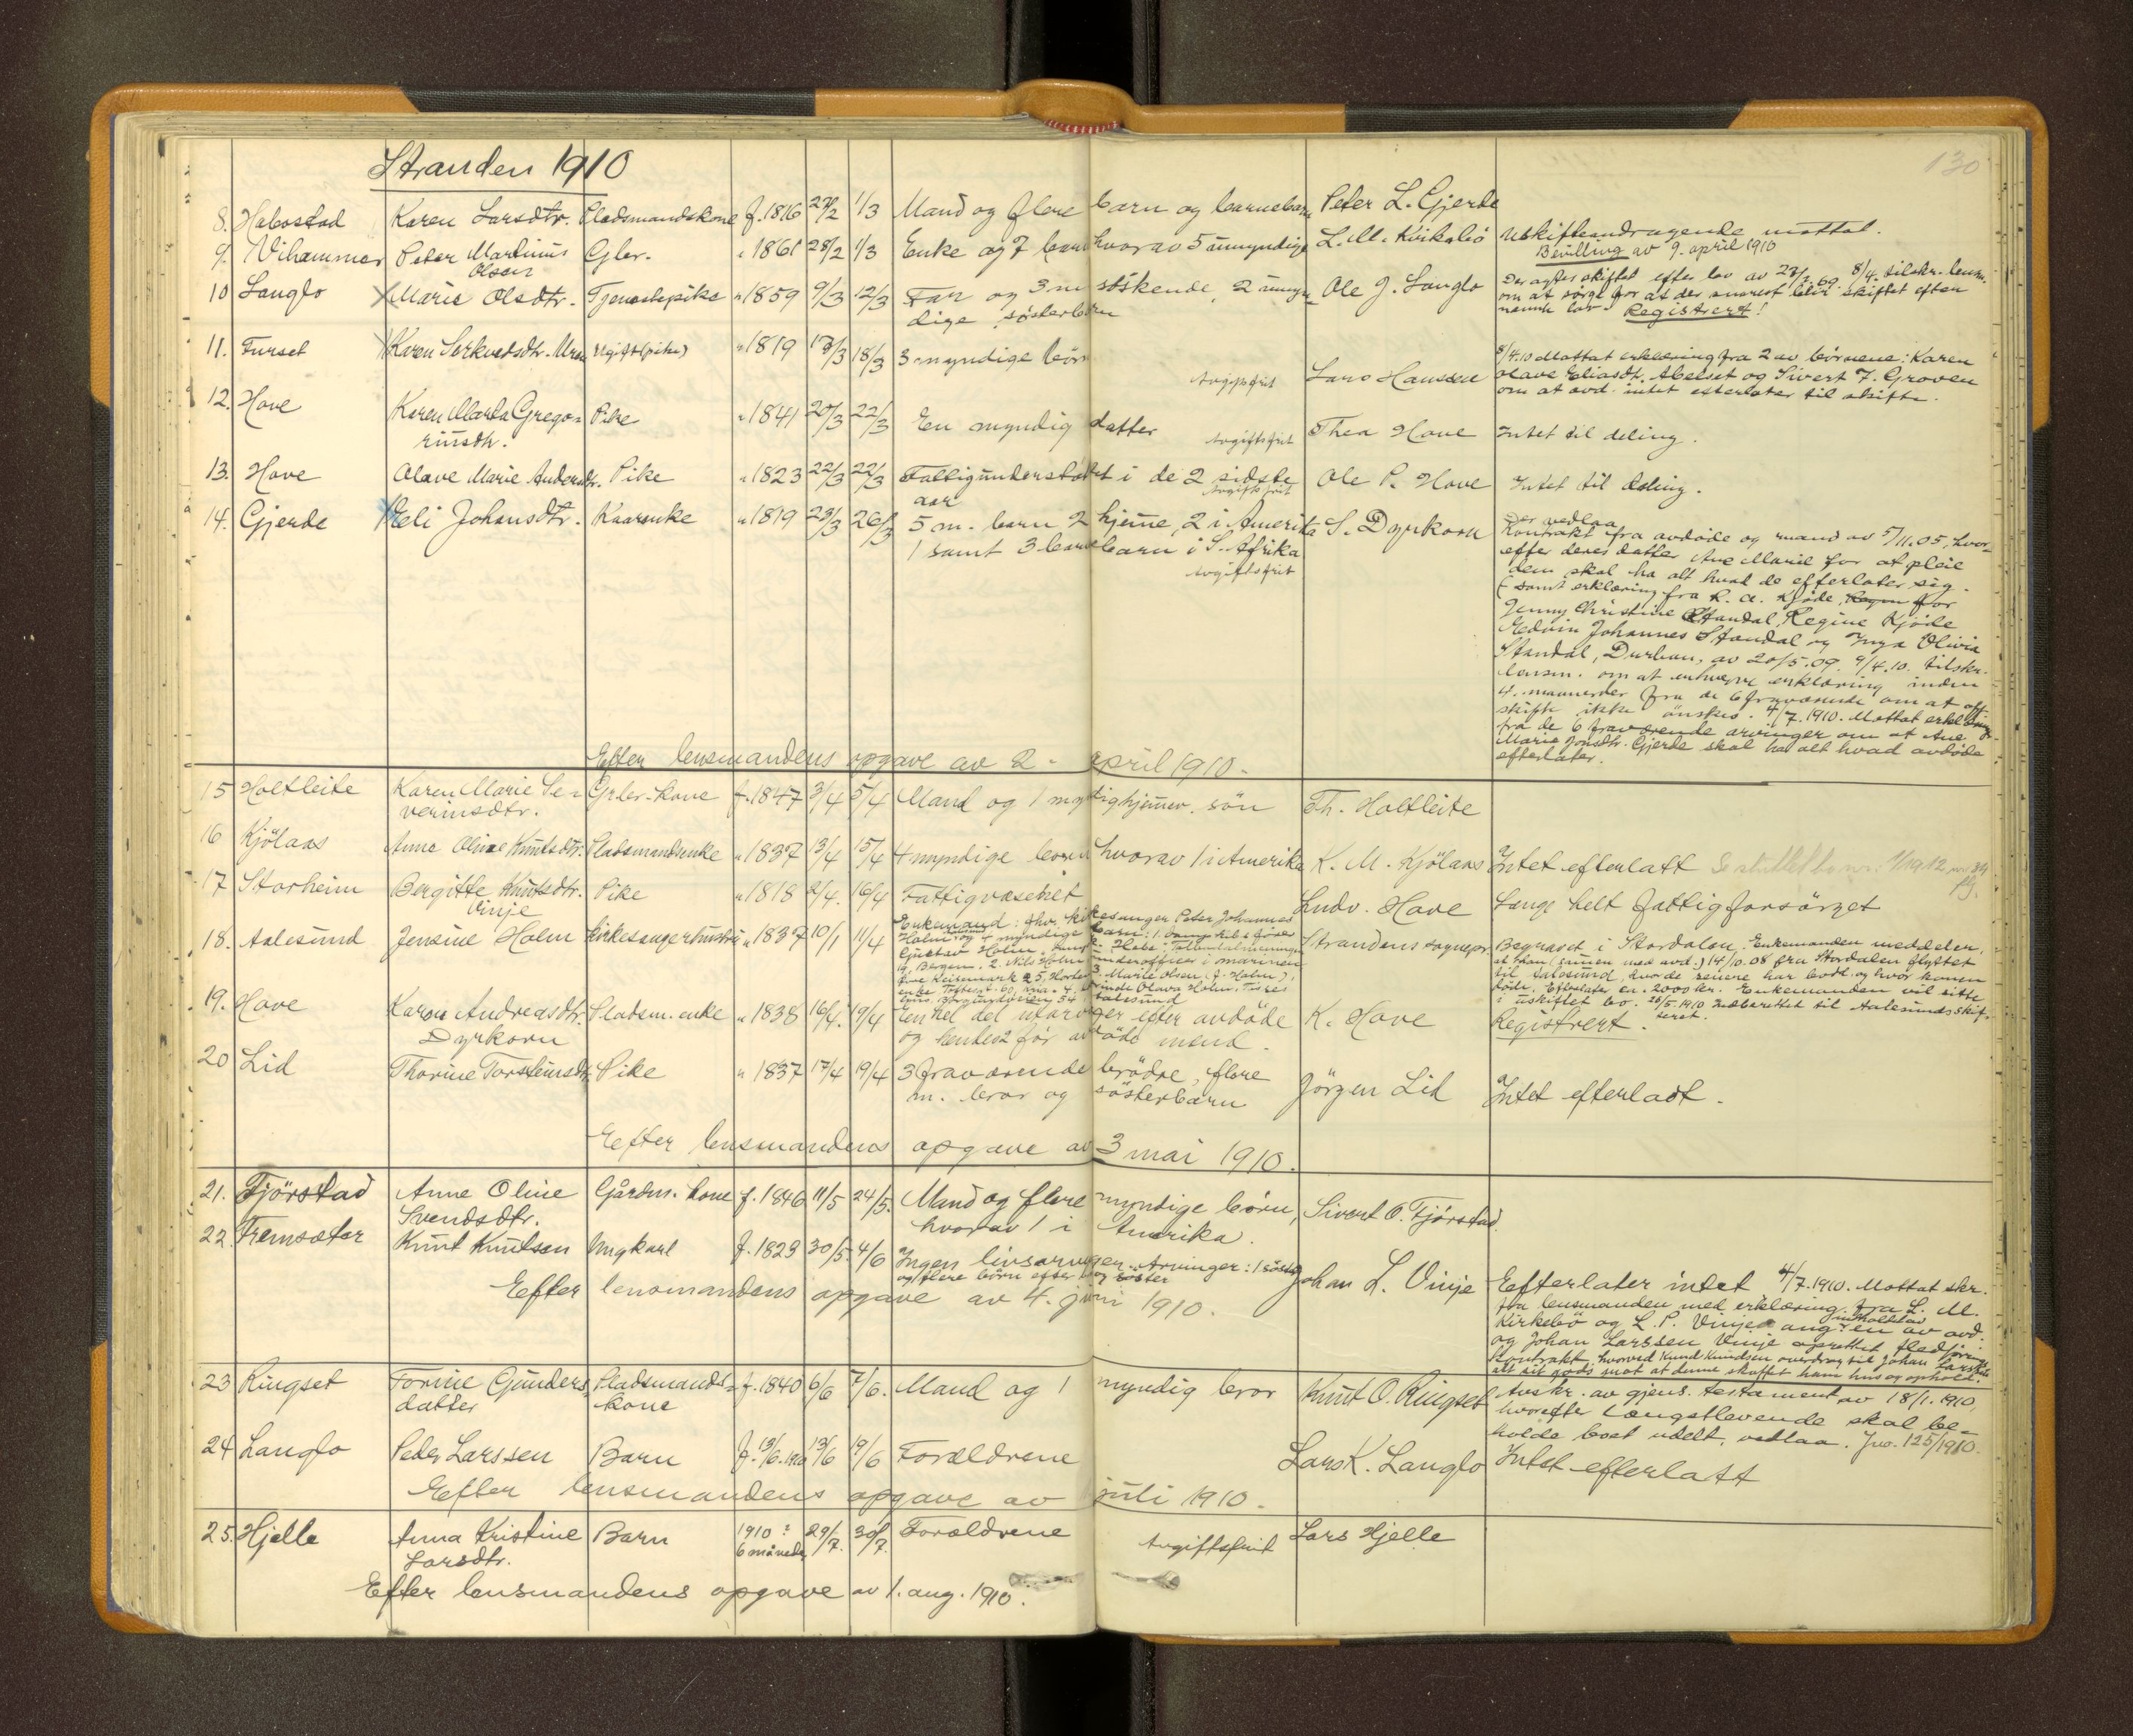 130
Stranden 1910
8. Habostad Karen Larsdtr. Pladsmandskone f. 1816 27/2 1/3 Mand og flere barn og barnebarn Peter L. Gjerde
9. Vihammer Peter Martinus Gbr. " 1861 28/2 1/3 Enke og 7 barn hvorav 5 umyndige L. M. Kirkebö Uskifteandragende mottat.
Olsen Bevilling av 9. april 1910
10 Langlo Marie Olsdtr. Tjenestepike " 1859 9/3 12/3 Far og 3 m søskende, 2 umyn= Ole J. Langlo Der agtes skiftet efter lov av 8/4. tilskr. lensm.
dige søsterbarn om at sørge for at der snarest blir skiftet efter
nævnte lov Registrert!
11. Furset Karen Ugift (pike) " 1819 17/3 18/3 3 myndige börn
Avgiftsfrit Lars Hanssen 8/4.10 Mottat erklæring fra 2 av börnene: Karen
Olave Eliasdtr. Abelset og Sivert 7. Groven
om at avd. intet efterlater til skifte.
12. Hove Karen Marta Grego= Pike " 1841 20/3 22/3 En myndig datter Avgiftsfrit Thea Hove Intet til deling.
riusdtr.
13. Hove Olave Marie Andersdtr. Pike " 1823 22/3 22/3 Fattigunderstøttet i de 2 sidste Ole P. Hove Intet til deling.
aar Avgiftsfrit
14. Gjerde Eli Johansdtr. Kaarenke " 1819 23/3 26/3 5 m. barn 2 hjeme, 2 i Amerika S. Dyrkorn Der vedlaa
1 samt 3 barnebarn i S. Afrika Kontrakt fra avdöde og mand av 5/11.05, hvor-
Avgiftsfrit efter deres datter Ane Marie for at pleie
dem skal ha alt hvad de efterlater sig.
(samt erklæring fra R. A. Kjöde, for
Jenny Christine Standal, Regine Kjöde
Edvin Johannes Standal og Inga Olivia
Standal, Durban, av 20/5.09. 9/4.10. tilskr.
lensm. om at erklæring inden
4. maaneder fra de 6 fraværende om at off.
skifte ikke önskes. 4/7.1910. Mottat erklæring
fra de 6 fraværende arvinger om at Ane
Marie Jonsdtr. Gjerde skal ha alt hvad avdöde
efterlater.
Efter lensmandens opgave av 2 - april 1910 -
15 Holtleite Karen Marie Se= Grbr.-kone f. 1847 3/4 5/4 Mand og 1 myndig hjemev. sön Th. Holtleite
verinsdtr.
16 Kjölaas Anne Oline Knutsdtr. Pladsmandsenke " 1837 13/4 15/4 4 myndige born hvorav 1 i Amerika K. M. Kjölaas Intet efterlatt
17 Storheim Bergitte Knutsdtr. Pike " 1818 2/4. 16/4 Fattigvæsenet Ludv. Hove Længe helt fattigforsörget
Vinje
18. Aalesund Jensine Holm kirkesangerhustru " 1837 10/1 11/4 Enkemand: fhv. kirkesanger Peter Johannes Strandens sognepr. Begravet i Stordalen. Enkemanden meddeler,
Holm og 4 myndige barn: 1. at han (sammen med avd.) 14/10.08 fra Stordalen flyttet
Gustav Holm, til Aalesund, hvor de senere har bodt og hvor konen
Bergen. 2. Nils Holm underofficer i marinen döde. Efterlater en. 2000 kr. Enkemanden vil sitte
Horten 3. Marie Olsen (f. Holm), i uskiftet bo. 26/5.1910 Indberettet til Aalesunds skif-
enke Olava Holm, teret.
54 Aalesund
19. Hove Karen Andreasdtr. Pladsm. enke " 1838 16/4. 19/4 En hel del utarvinger efter avdöde K. Hove Registrert.
Dyrkorn og hendes 2 för avdöde mænd.
20 Lid Thorine Torsteinsdtr. Pike " 1837 17/4 19/4 3 fraværende brödre, flere Jörgen Lid Intet efterladt.
m. bror og søsterbarn
Efter lensmandens opgave av 3 mai 1910.
21. Fjörstad Anne Oline Gårdm. kone f. 1846 11/5 24/5. Mand og flere myndige börn, Sivert O. Fjörstad.
Svendsdtr. hvorav 1 i Amerika.
22. Fremsæter Knut Knutsen Ungkarl f. 1823 30/5. 4/6 Ingen livsarvinger. Arvinger: 1 söster Johan L. Vinje Efterlater intet 4/7.1910. Mottat skr.
og flere börn efter bror og söster fra lensmanden med erklæring fra L. M.
Efter lensmandens opgave av 4. juni 1910. Kirkebö og L. P. Vinje ang. indholdet av en av avd.
og Johan Larssen Vinje oprettet fledföring
kontrakt, hvorved Knud Knudsen overdrog til Johan Larssen
alt sit gods mot at denne skaffet ham hus og ophold.
23 Ringset Torine Gunders= Pladsmands= f. 1840 6/6 7/6. Mand og 1 myndig bror Knut O. Ringset Avskr. av gjens. testament av 18/1.1910,
datter kone hvorefter længstlevende skal be=
holde boet udelt, vedlaa. Jno. 125/1910.
24 Langlo Peder Larssen Barn f. 13/6.1910 13/6 19/6 Forældrene Lars K. Langlo Intet efterlatt
Efter lensmandens opgave av juli 1910.
25. Hjelle Anna Kristine Barn 1910 ? 29/7. 30/7. Forældrene Avgiftsfrit Lars Hjelle
Larsdtr. 6 måneder
Efter lensmandens opgave av 1. aug. 1910.